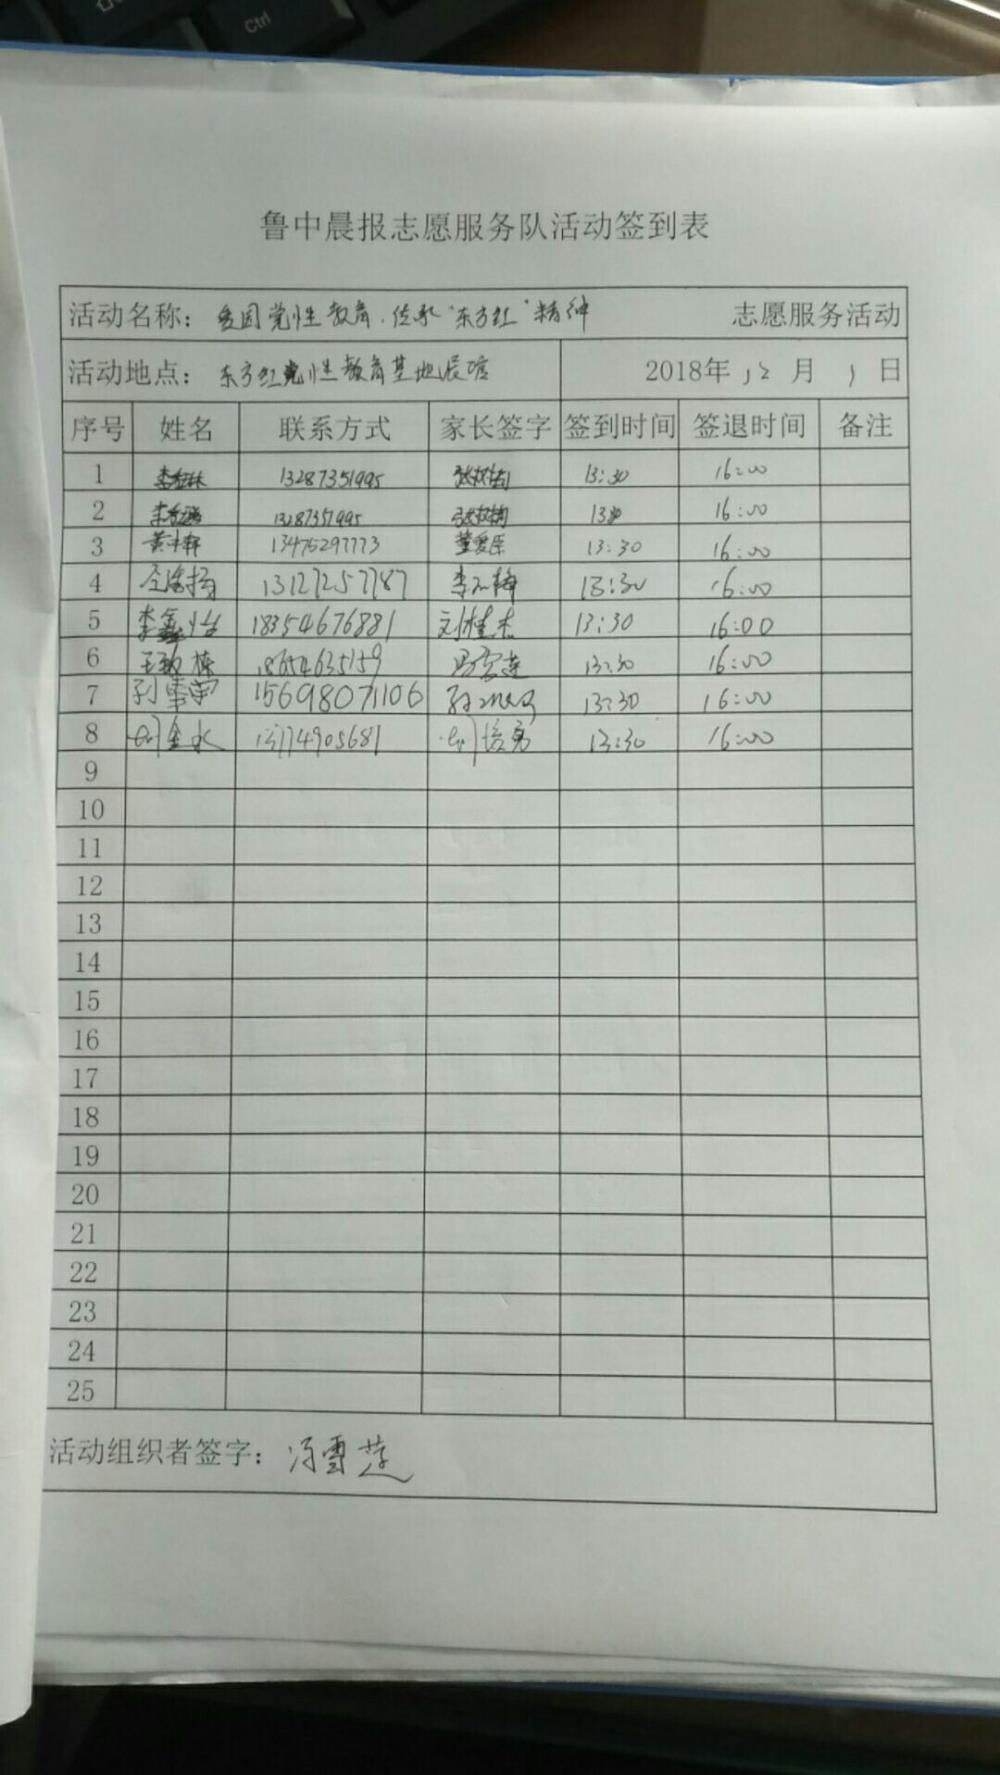 Ctrl
鲁中晨报志愿服务队活动签到表
活动名称：爱国党性教育.传承"东方红"精神 志愿服务活动
活动地点：东方红党性教育基地展馆 2018年 12 月 1 日
序号 姓名 联系方式 家长签字 签到时间 签退时间 备注
1 13287351995 13:30 16:00
2 13287351995 1330 16:00
3 13475297773 董爱臣 13:30 16:00
4 13127257787 13:30 16:00
5 李鑫怡 18354676881 刘桂杰 13:30 16:00
6 王敏栋 18654635159 冯雪莲 13:30 16:00
7 15698071106 13:30 16:00
8 金水 13774905681 培勇 13:30 16:00
9
10
11
12
13
14
15
16
17
18
19
20
21
22
23
24
25
活动组织者签字：冯雪莲